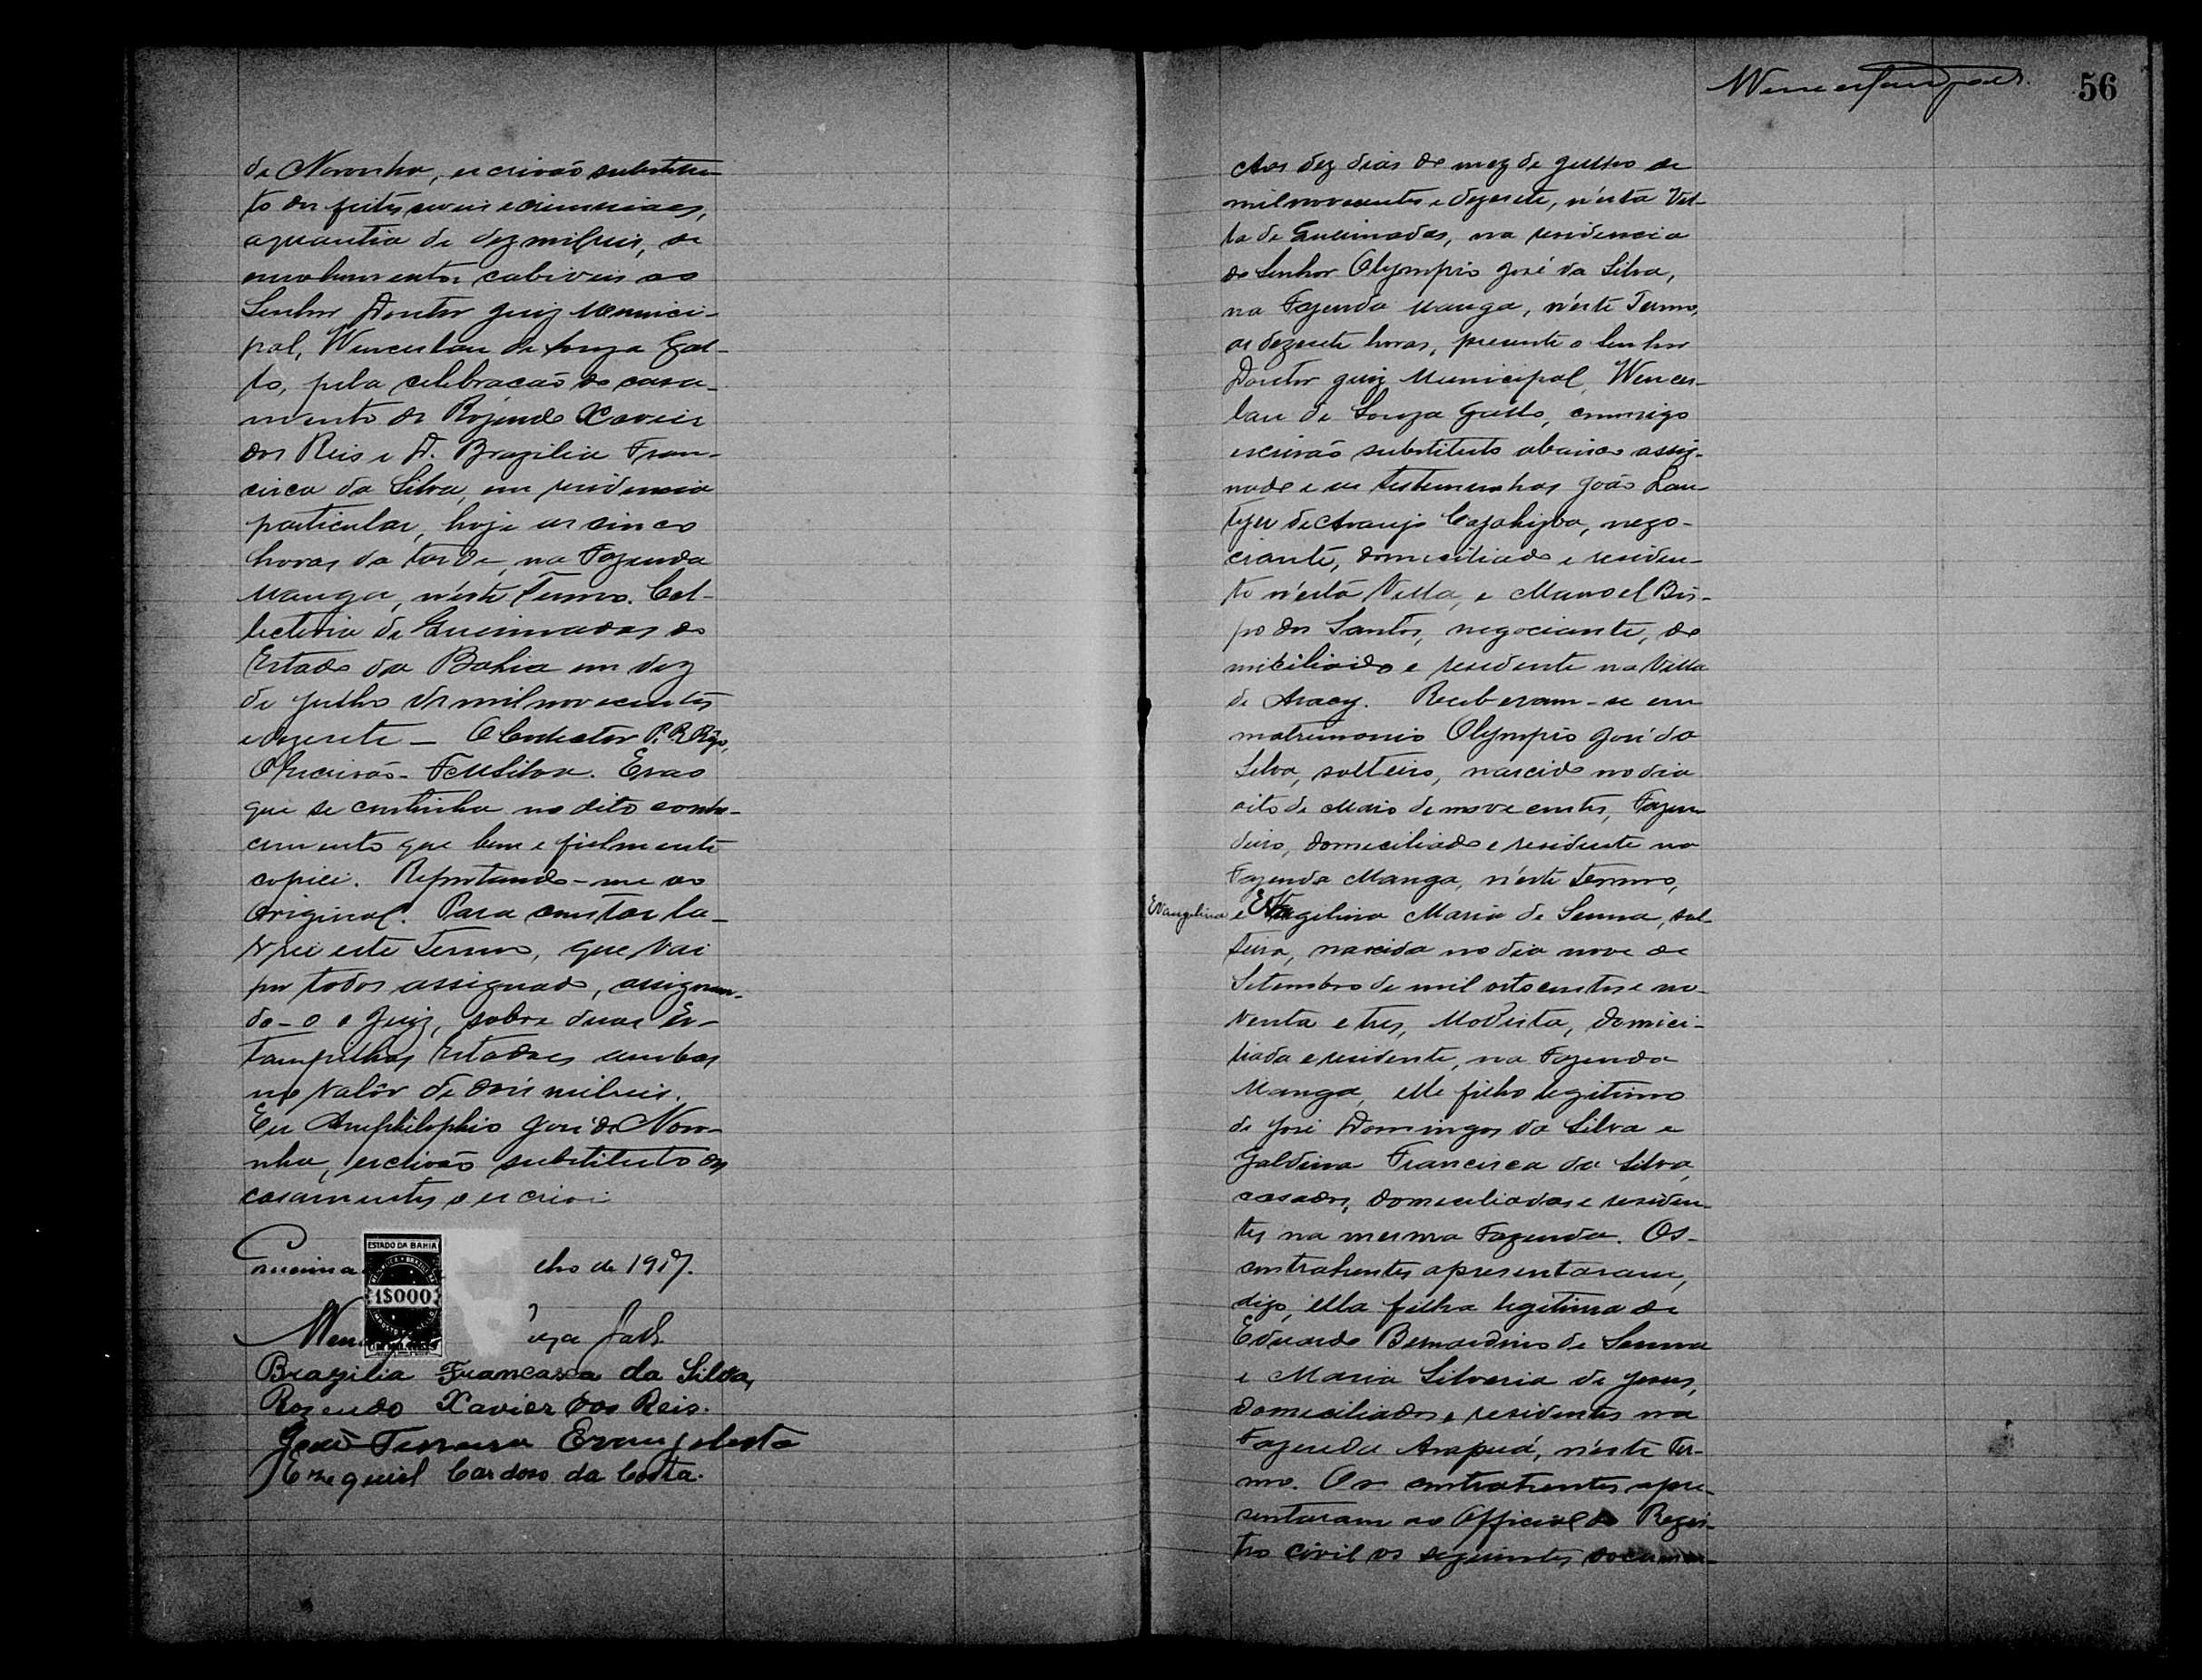 de Noronha, escrivão substitu-
to dos feitos civeis e criminaes,
a quantia de dez mil reis, de
emolumentos cabiveis ao
Senhor Doutor Juiz Munici-
pal, Wenceslau de Souza Gal-
lo, pela celebração do casa-
mento de Rozendo Xavier
dos Reis e D. Brazilia Fran-
cisca da Silva, em residencia
particular, hoje as cinco
horas da tarde, na Fazenda
Manga, n'este Termo. Col-
lectoria de Queimadas do
Estado da Bahia em dez
de Julho de mil novecentos
e dezesete — O Collector P. R. Rego,
O Escrivão - F. M. Silva. Era o
que se continha no dito conhe-
cimento que bem e fielmente
copiei. Reportando-me ao
original. Para constar la-
vrei este Termo, que vai
por todos assignado, assignan-
do-o o Juiz, sobre duas Es-
tampilhas Estadoes ambas
no valôr de dois mil reis.
Eu Amphilophio José de Noro-
nha, escrivão substituto dos
casamentos o escrevi
Queima lho de 1917.
ESTADO DA BAHIA
1$000
Wen uza Gallo
Brazilia Francasca da Silva,
Rozendo Xavier dos Reis.
José Ferreira Evangelista
Ezequiel Cardoso da Costa.
56
Aos dez dias do mez de Julho de
mil novecentos e dezesete, n'esta Vil-
la de Queimadas, na residencia
do Senhor Olympio José da Silva,
na Fazenda Manga, n'este Termo,
as dezesete horas, presente o Senhor
Doutor Juiz Municipal, Wences-
lau de Souza Gallo, commigo
escrivão substituto abaixo assig-
nado e as testemunhas João Lau-
de Araujo Cajahyba, nego-
ciante, domiciliado e residen-
te n'esta Villa, e Manoel Bis-
po dos Santos, negociante, do
miciliado e residente na Villa
de Aracy. Receberam-se em
matrimonio Olympio José da
Silva, solteiro, nascido no dia
oito de Maio de novecentos, Fazen
deiro, domiciliado e residente na
Fazenda Manga, n'este termo,
Evangelina e Evangilina Maria de Senna, sol-
teira, nascida no dia nove de
Setembro de mil oitocentos e no-
venta e tres, Modista, domici-
liada e residente, na Fazenda
Manga, elle filho legitimo
de José Domingos da Silva e
Galdina Francisca da Silva,
casados, domiciliados e residen-
tes na mesma Fazenda. Os-
contrahentes apresentaram,
digo, ella filha legitima de
Eduardo Bernardino de Senna
e Maria Silveria de Jesus,
domiciliados e residentes na
Fazenda Arapuá, n'este Ter-
mo. Os contrahentes apre-
sentaram ao Official do Regis-
tro Civil os seguintes documen-